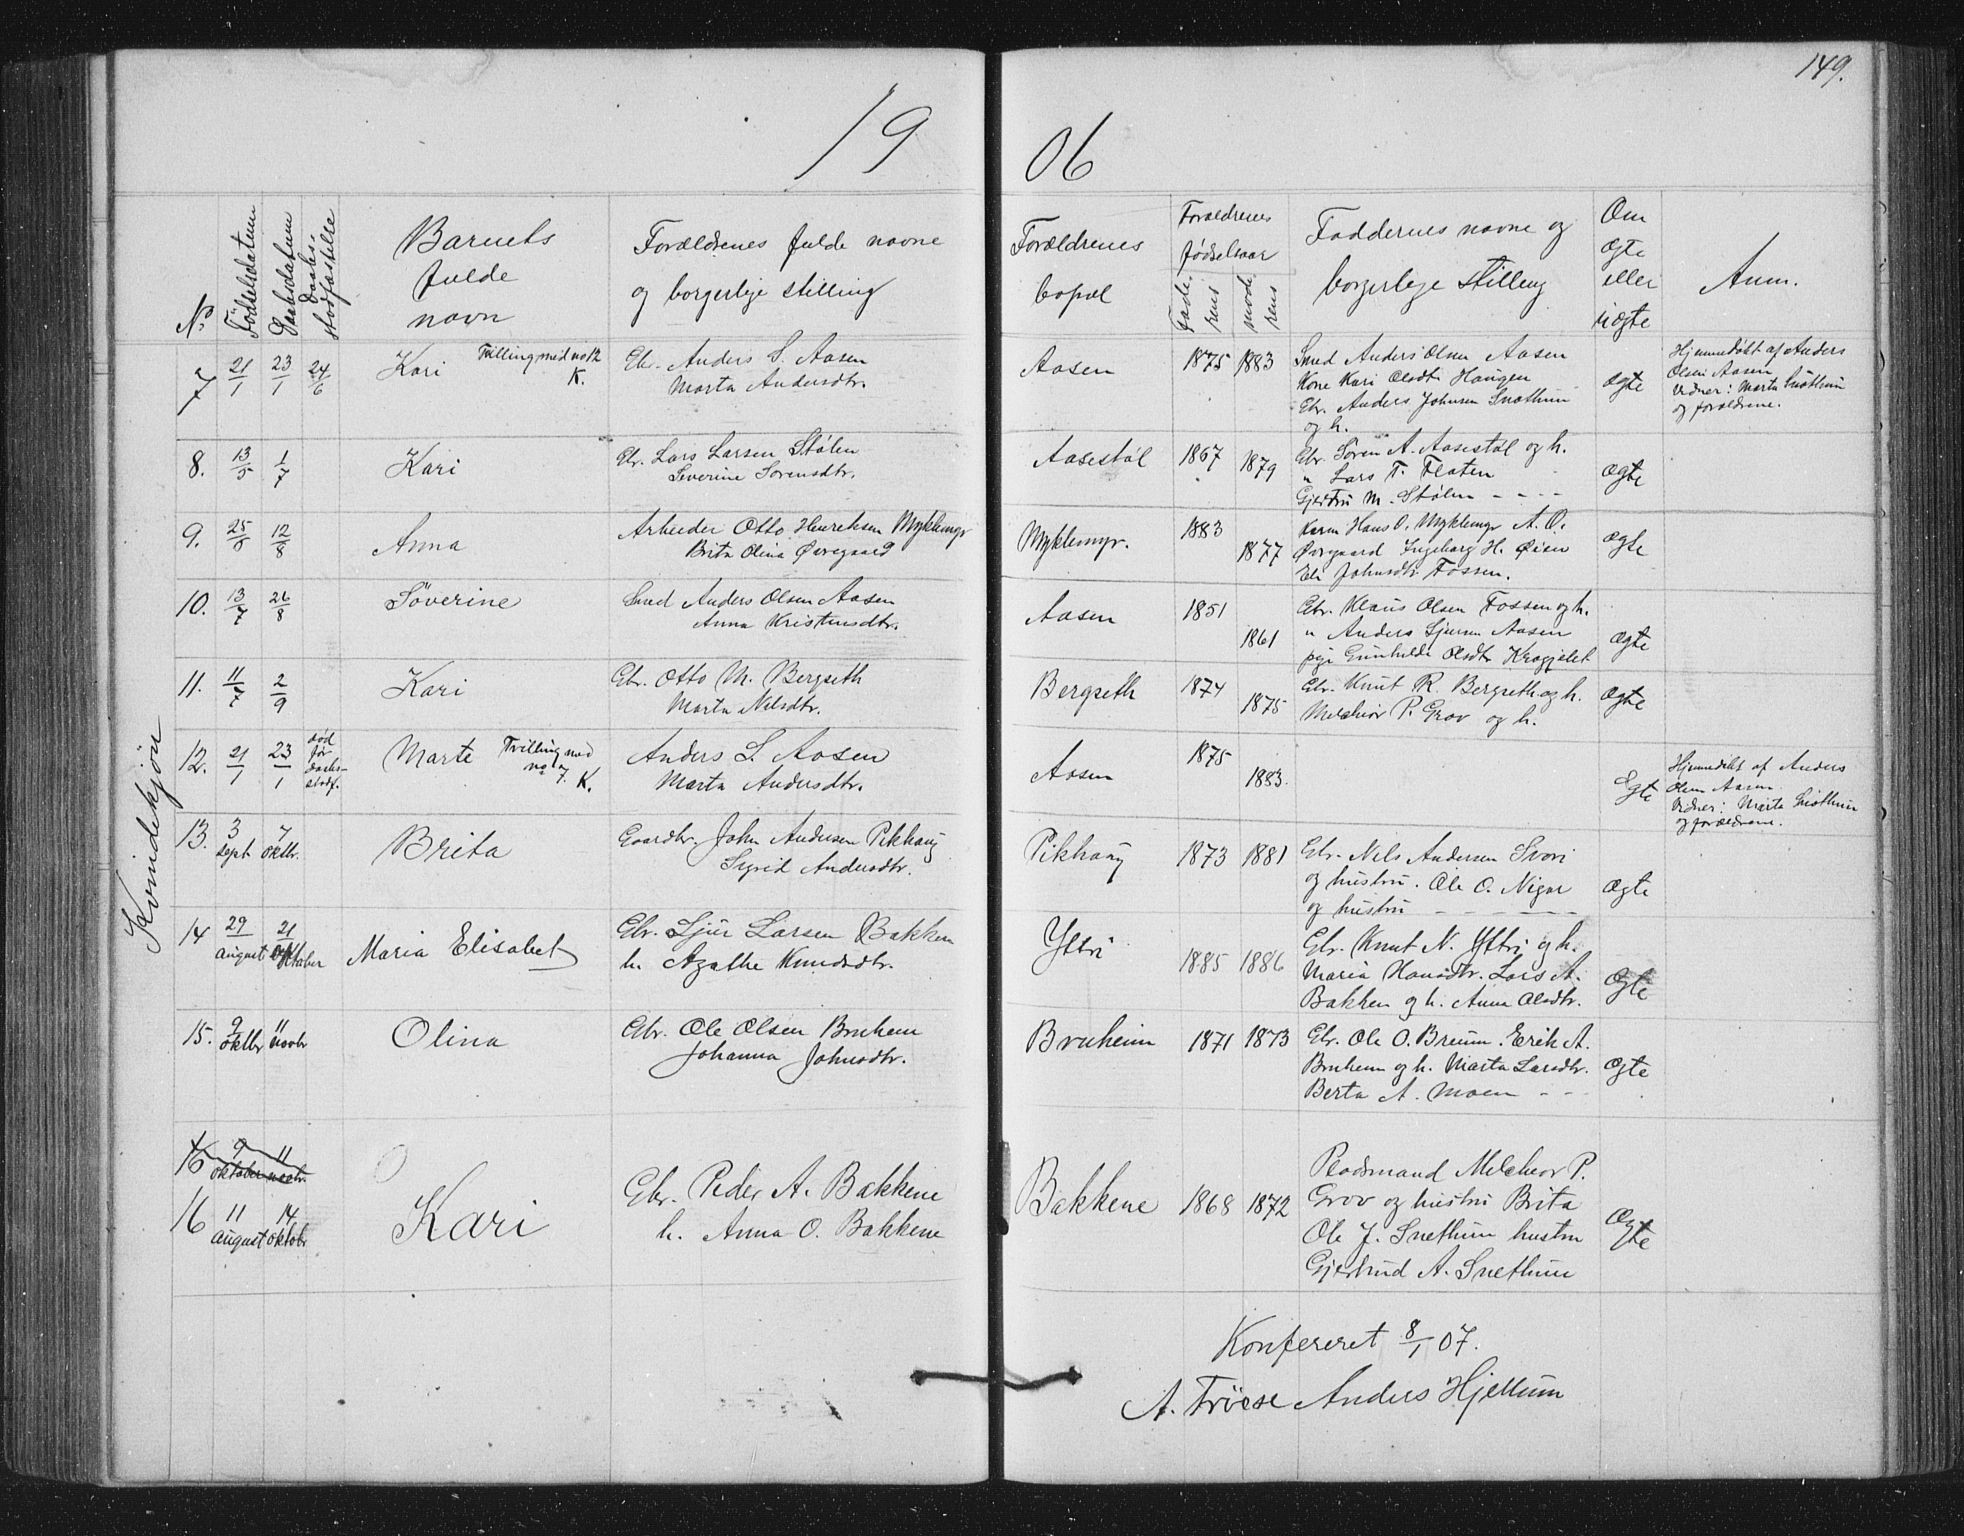 149.
19 06
Kvindekjøn
No.
Fødselsdatum
Daabsdatum
Daabs-
stadfæstelse
Barnets
fulde
navn
Forældrenes fulde navne
og borgerlige stilling
Forældrenes
bopæl
Forældrenes
fødselsaar
Fade-
rens
mode-
rens
Faddernes navne og
borgerlige Stilling
Om
ægte
eller
uægte
Anm.
7 21/1 23/1 24/6 Kari Tvilling med no 12
K.
Gbr. Anders S. Aasen
Marta Andersdtr.
Aasen 1875 1883
Smed Anders Olsen Aasen
Kone Kari Olsdtr Haugen
Gbr. Anders Johnsen Snøthun
og h.
ægte
Hjemmedøbt af Anders
Olsen Aasen
Vidner: Marta Snøthun
og forældrene.
8. 13/5 1/7 Kari
Gbr. Lars Larsen Stølen
Severine Sørensdtr.
Aasestøl 1867 1879
Gbr. Søren A. Aasestøl og h.
" Lars T. Flaten
Gjertru M. Stølen - - - -
ægte
9. 25/5 12/8 Anna
Arbeider Otto Henriksen Myklemyr
Brita Olina Øvregaard
Myklemyr. 1883 1877
Karen Hans O. Myklemyr A. O.
Øvregaard Ingeborg H. Øien
Eli Johnsdtr Fossen.
ægte
10. 13/7 26/8 Söverine
Smed Anders Olsen Aasen
Anna Kristensdtr.
Aasen 1851 1861
Gbr. Klaus Olsen Fossen og h.
" Anders Sjursen Aasen
pige Gunhilde Olsdtr Kragjelet
ægte
11. 11/7 2/9 Kari
Gbr. Otto M. Bergseth
Marta Nilsdtr.
Bergseth 1874 1875
Gbr. Knut R. Bergseth og h.
Melchior P. Grov og h.
ægte
12. 21/1 23/1 død
før
daabs-
stadf.
Marte Tvilling med
no 7. K.
Anders S. Aasen
Marta Andersdtr.
Aasen 1875 1883.
Ægte
Hjemmedøbt af Anders
Olsen Aasen
Vidner: Marta Snøthun
og forældrene.
13. 3 sept 7 oktbr. Brita
Gaardbr. John Andersen Pikhaug
Sigrid Andersdtr.
Pikhaug 1873 1881
Gbr. Nils Andersen Svori
og hustru. Ole O. Nigar
og hustru - - - - - -
ægte
14 29 august 21 Oktober Maria Elisabet
Gbr. Sjur Larsen Bakken
h. Agathe Knudsdtr.
Yttri 1885 1886
Gbr. Knut N. Yttri og h.
Maria Hansdtr. Lars A.
Bakken og h. Anna Olsdtr.
Ægte
15. 9 oktbr 11 novbr Olina
Gbr. Ole Olsen Bruheim
Johanna Johnsdtr.
Bruheim 1871 1873
Gbr. Ole O. Breum. Erik A.
Bruheim og h. Marta Larsdtr.
Berta A. Moen - - -
ægte
16 9 oktober 11 novbr.
16 11 august 14 oktobr Kari
Gbr. Peder A. Bakkene
h. Anna O. Bakkene
Bakkene 1868 1872
Pladsmand Melchior P.
Grov og hustru Brita
Ole J. Snethun hustru
Gjertrud A. Snethun
Ægte
Konfereret 8/1 07.
A. Tröese Anders Hjellum